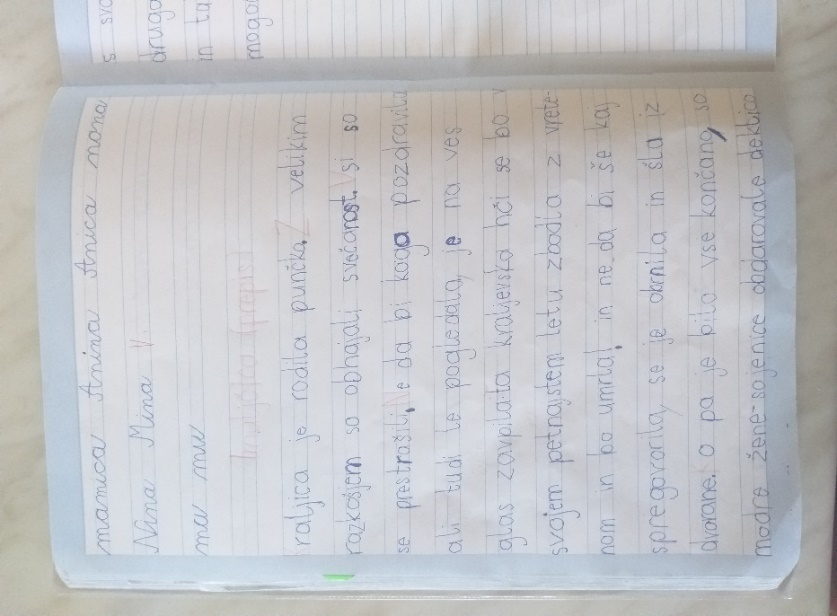 manica Anina Anica nona
Nina Mina V.
mu mu
(prepis)
Kraljica je rodila punčko. Z velikim
razkošjem so obhajali svečanost. Vsi so
se prestrašili, Ne da bi koga pozdravila
ali tudi le pogledala, je na ves
glas zavpila ta kraljevska hči se bo v
svojem petnajstem letu zbodla z vrete-
nom in bo umrla, in ne da bi še kaj
spregovorila, se je obrnila in šla iz
dvorane. Ko pa je bilo vse končano, so
modre žene-sojenice obdarovale deklico
s svo
drugo
in ta
mogo